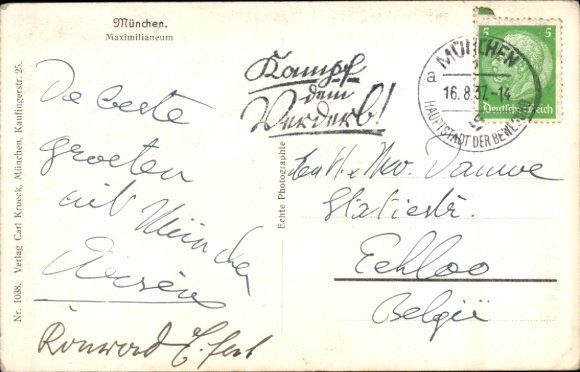 München.
Maximilianeum
Kampf
dem
Verderb!
a MÜNCHEN
16.8.37.-14
9
HAUPTSTADT DER BEWEGUNG
5 5
Deutsches Reich
De beste
groeten
uit München
Konrad
Nr. 1038. Verlag Carl Krueck, München, Kaufingerstr. 25.
Echte Photographie
Mev. Dauwe
Statiestr.
Eekloo
België